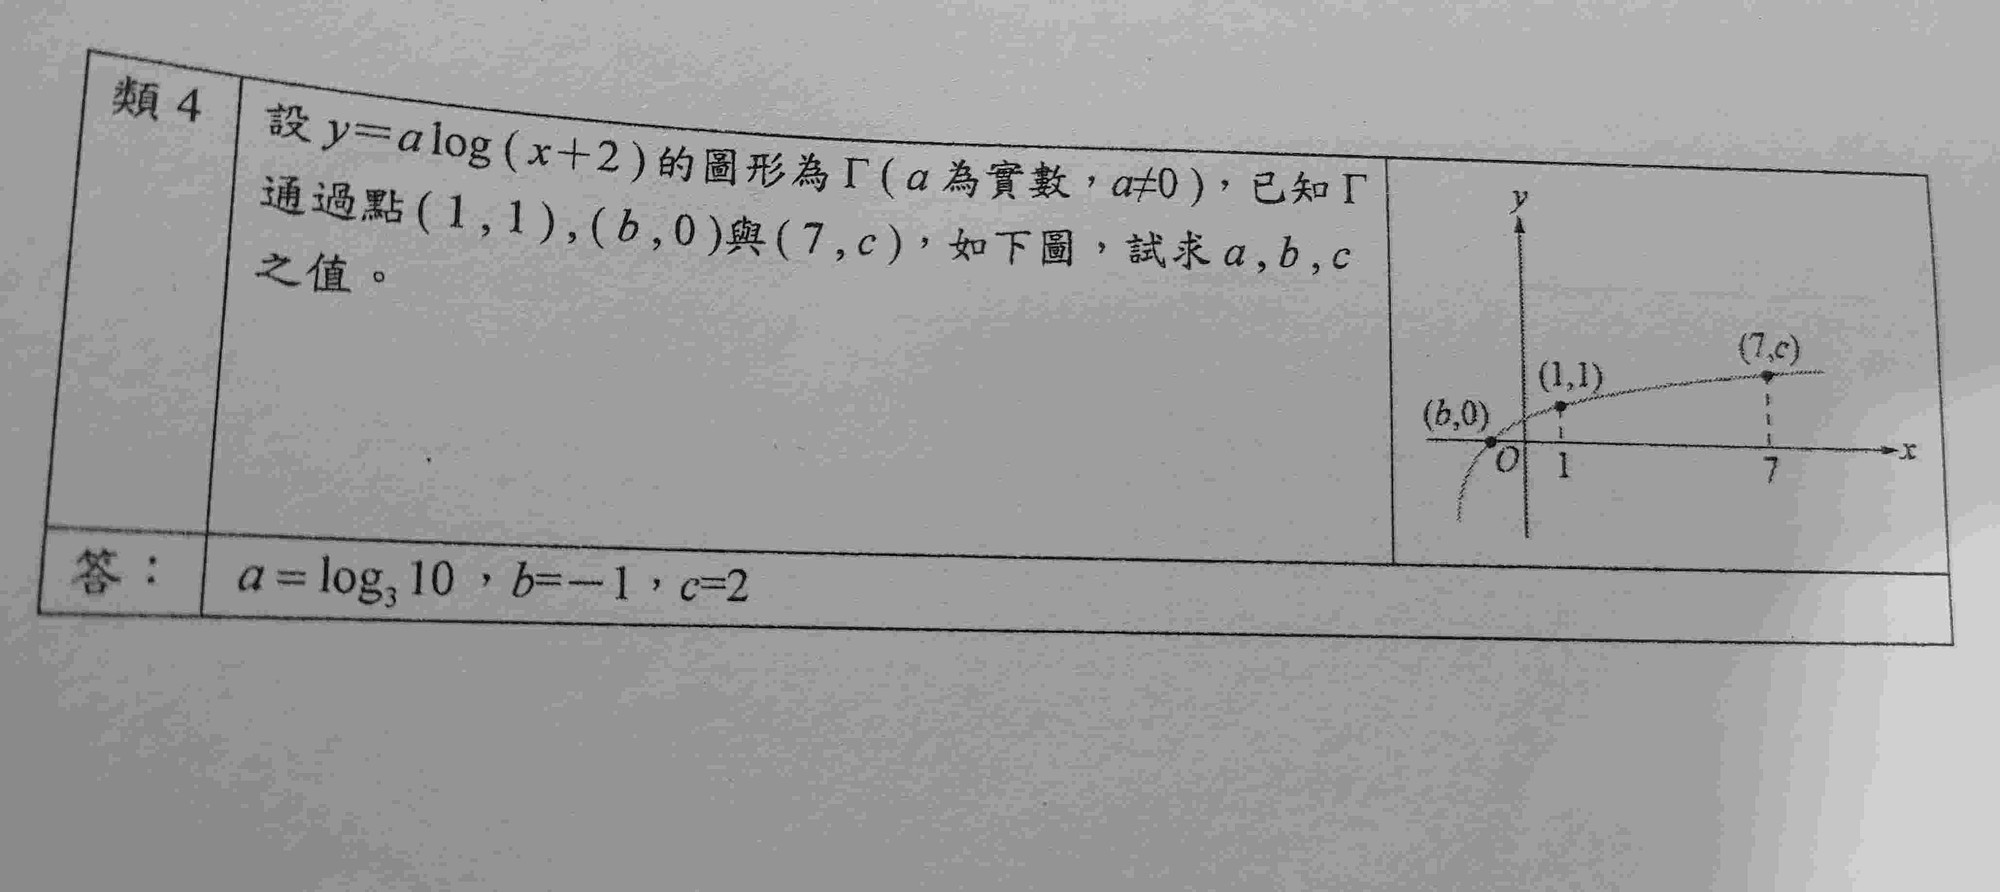 類 4
設 y=a log(x+2)的圖形為Γ(a 為實數，a≠0)，已知Γ
通過點(1,1),(b,0)與(7,c)，如下圖，試求 a,b,c
之值。
y
(7,c)
(1,1)
(b,0)
O 1 7 x
答： a=log₃10，b=−1，c=2